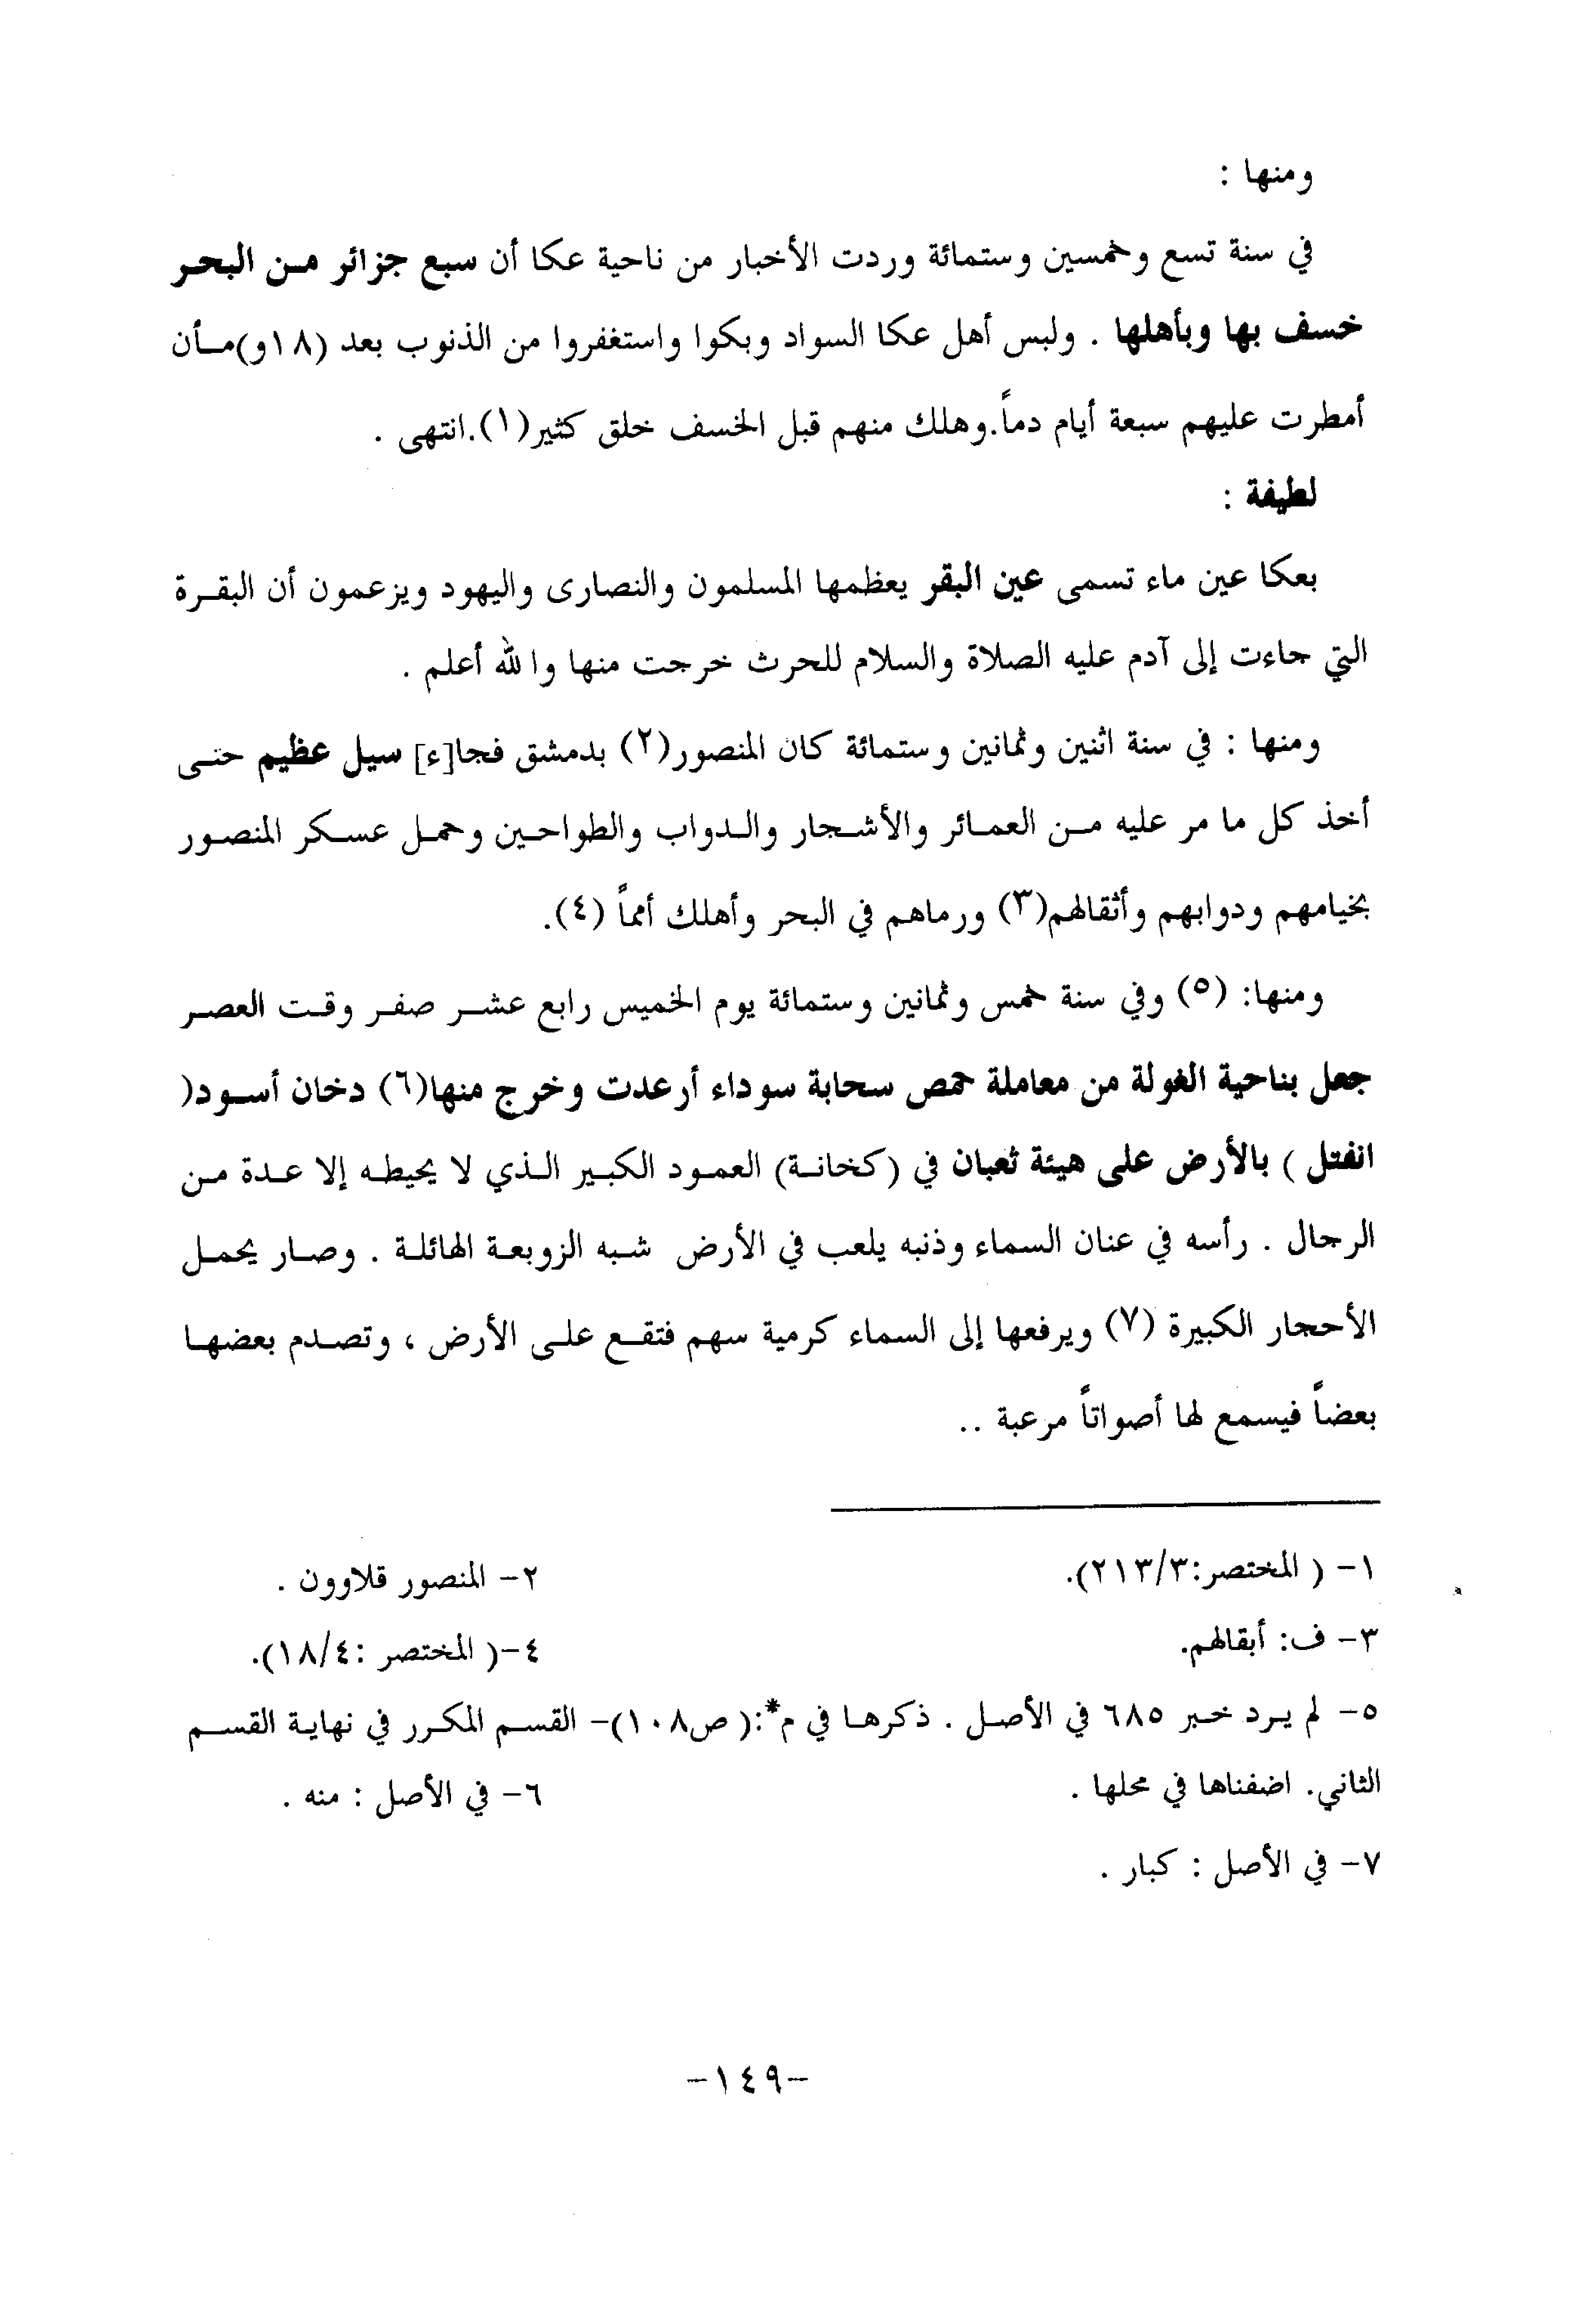 ومنها :
في سنة تسع وخمسين وستمائة وردت الأخبار من ناحية عكا أن سبع جزائر من البحر
خسف بها وبأهلها . ولبس أهل عكا السواد وبكوا واستغفروا من الذنوب بعد (١٨و)مأن
أمطرت عليهم سبعة أيام دماً.وهلك منهم قبل الخسف خلق كثير(١).انتهى .
لطيفة :
بعكا عين ماء تسمى عين البقر يعظمها المسلمون والنصارى واليهود ويزعمون أن البقرة
التي جاءت إلى آدم عليه الصلاة والسلام للحرث خرجت منها والله أعلم .
ومنها : في سنة اثنين وثمانين وستمائة كان المنصور(٢) بدمشق فجا[ء] سيل عظيم حتى
أخذ كل ما مر عليه من العمائر والأشجار والدواب والطواحين وحمل عسكر المنصور
بخيامهم ودوابهم وأثقالهم(٣) ورماهم في البحر وأهلك أمماً (٤).
ومنها: (٥) وفي سنة خمس وثمانين وستمائة يوم الخميس رابع عشر صفر وقت العصر
جعل بناحية الغولة من معاملة حمص سحابة سوداء أرعدت وخرج منها(٦) دخان أسود(
انفتل ) بالأرض على هيئة ثعبان في (كخانة) العمود الكبير الذي لا يحيطه إلا عدة من
الرجال . رأسه في عنان السماء وذنبه يلعب في الأرض شبه الزوبعة الهائلة . وصار يحمل
الأحجار الكبيرة (٧) ويرفعها إلى السماء كرمية سهم فتقع على الأرض ، وتصدم بعضها
بعضاً فيسمع لها أصواتاً مرعبة ..
١- ( المختصر:٢١٣/٣).
٢- المنصور قلاوون .
٣- ف: أبقالهم.
٤-( المختصر :١٨/٤).
٥- لم يرد خبر ٦٨٥ في الأصل . ذكرها في م*:( ص١٠٨)- القسم المكرر في نهاية القسم
الثاني. اضفناها في محلها .
٦- في الأصل : منه .
٧- في الأصل : كبار .
-١٤٩-